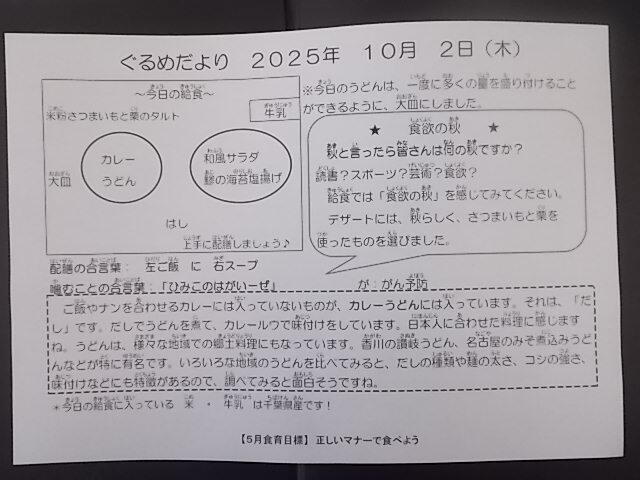 ぐるめだより 2025年 10月 2日(木)
～今日の給食～
牛乳
米粉さつまいもと栗のタルト
大皿
カレー
うどん
和風サラダ
鯵の海苔塩揚げ
はし
上手に配膳しましょう♪
※今日のうどんは、一度に多くの量を盛り付けること
ができるように、大皿にしました。
★ 食欲の秋 ★
秋と言ったら皆さんは何の秋ですか?
読書?スポーツ?芸術?食欲?
給食では「食欲の秋」を感じてみてください。
デザートには、秋らしく、さつまいもと栗を
使ったものを選びました。
配膳の合言葉: 左ご飯 に 右スープ
噛むことの合言葉:「ひみこのはがいーぜ」 が:がん予防
ご飯やナンを合わせるカレーには入っていないものが、カレーうどんには入っています。それは、「だ
し」です。だしでうどんを煮て、カレールウで味付けをしています。日本人に合わせた料理に感じます
ね。うどんは、様々な地域での郷土料理にもなっています。香川の讃岐うどん、名古屋のみそ煮込みうど
んなどが特に有名です。いろいろな地域のうどんを比べてみると、だしの種類や麺の太さ、コシの強さ、
味付けなどにも特徴があるので、調べてみると面白そうですね。
*今日の給食に入っている 米 ・ 牛乳 は千葉県産です!
【5月食育目標】 正しいマナーで食べよう